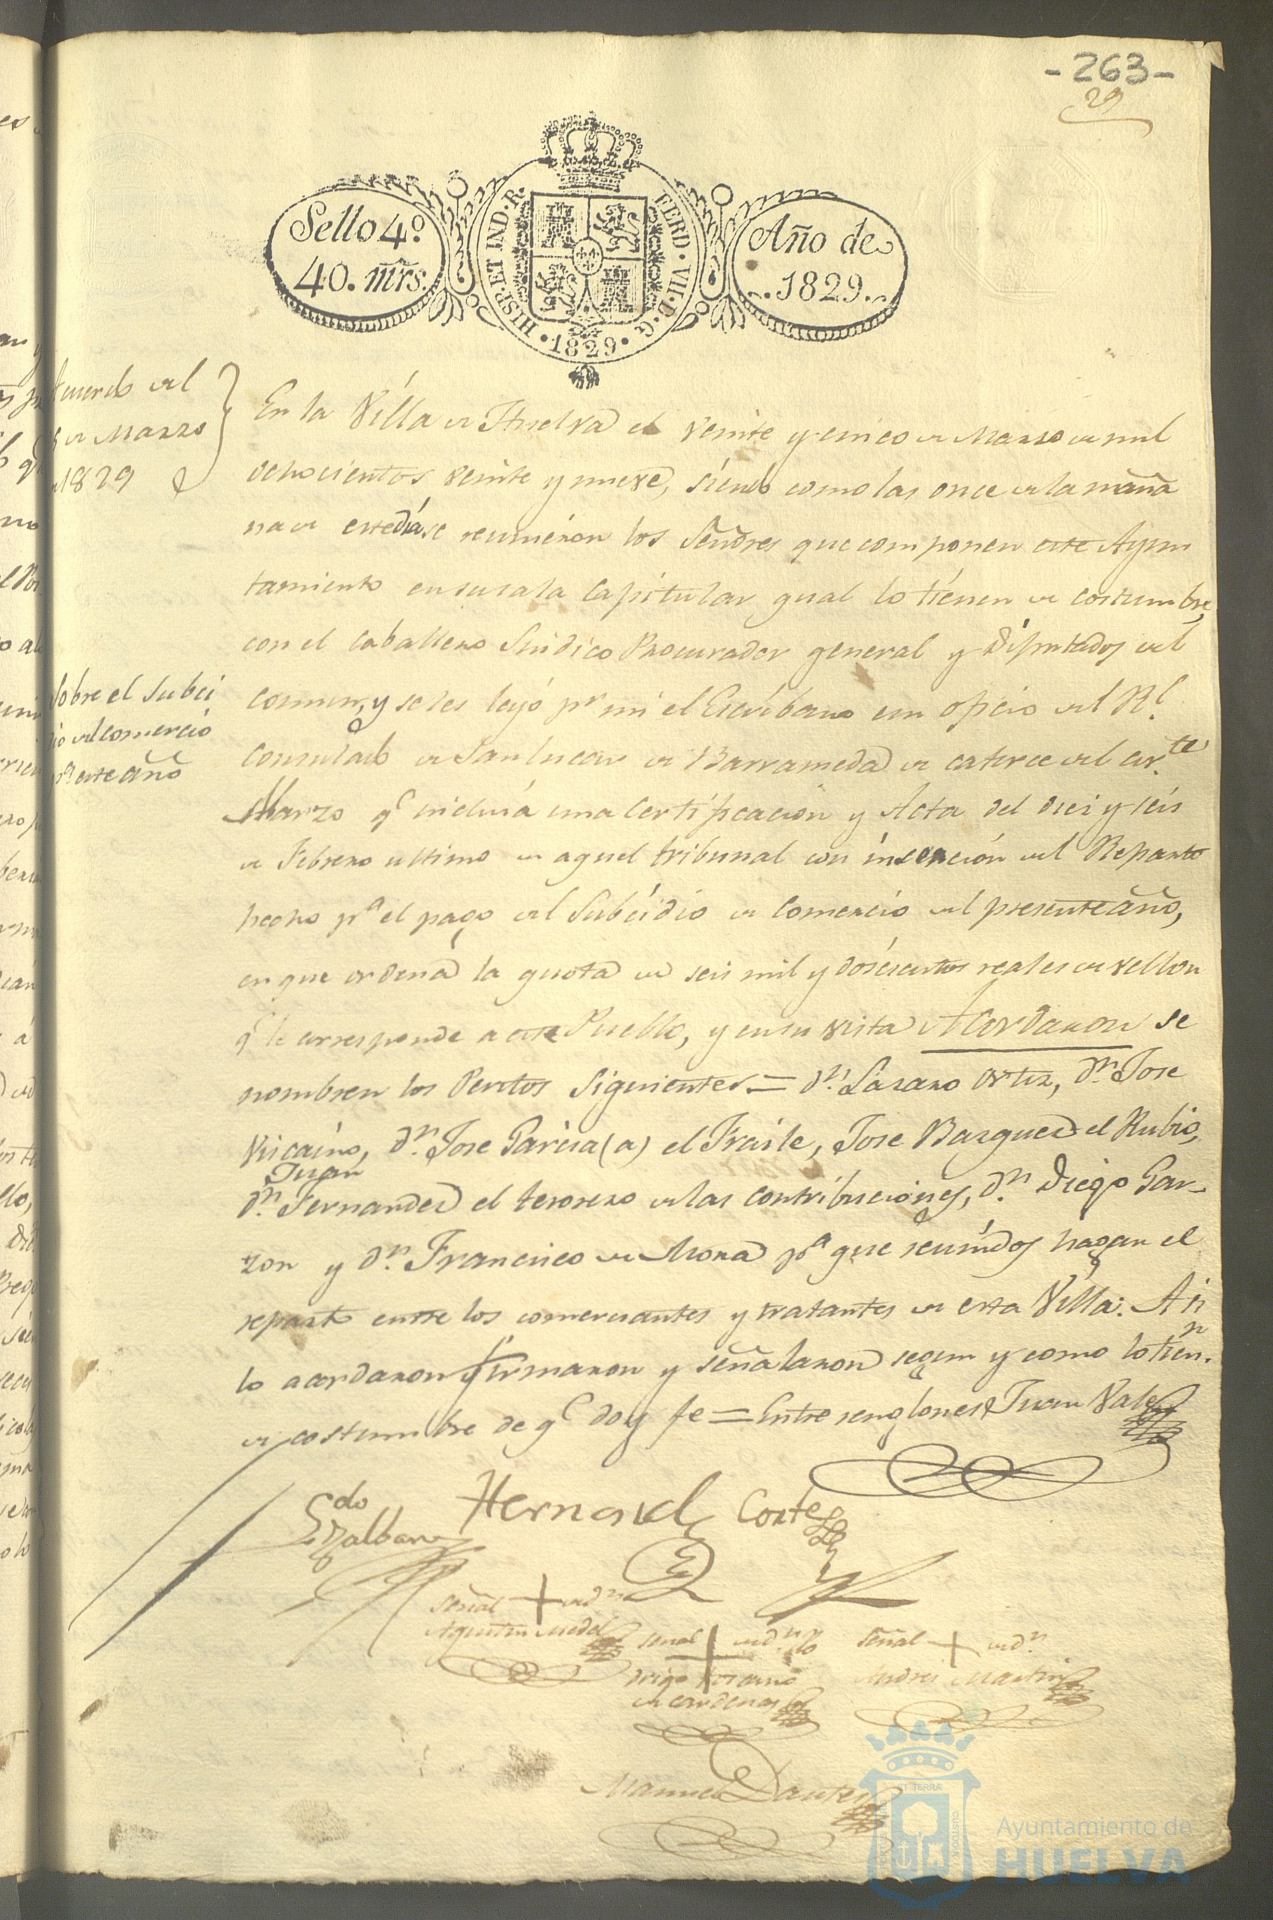 -263-
29
Sello 4º
40. mrs.
HISP·ET IND·R·
FERD·VII·D·G·
·1829·
Año de
1829.
Acuerdo del
de Marzo
1829
En la Villa de Huelva el veinte y cinco de Marzo de mil
ochocientos veinte y nueve, siendo como las once de la maña
na de este dia se reunieron los Señores que componen este Ayun
tamiento en su sala Capitular qual lo tienen de costumbre,
con el Caballero Sindico Procurador general y Diputados del
Sobre el Subci
dio del comercio
pª este año
comun, y se les leyó pr mi el Escribano un oficio del Rl
Consulado de Sanlucar de Barrameda de catorce del corrte
Marzo qe incluia una Certificacion y Acta del diez y seis
de Febrero ultimo de aquel tribunal con insercion del Reparto
hecho pª el pago del Subcidio de Comercio del presente año,
en que ordena la quota de seis mil y doscientos reales de vellon
qe le corresponde a este Pueblo, y en su vista Acordaron se
nombren los Peritos Siguientes = Dn. Lazaro Ortiz, Dn. Jose
Viscaino, Dn. Jose Garcia (a) el Fraile, Jose Bazquez el Rubio,
Juan
Dn. Fernandez el tesorero de las contribuciones, Dn. Diego Gar-
zon y Dn. Francisco de Mora pª que reunidos hagan el
reparto entre los comerciantes y tratantes de esta Villa: Asi
lo acordaron firmaron y señalaron segun y como lo tienn.
de costumbre de qe doy fe = Entre renglones Juan Vale
Hernand Cortes
Señal + de Dn
Agustin Medel
Señal + de Dn
Diego
de Cardenas
Señal + de Dn
Andres Martin
Manuel Dantes
Ayuntamiento de
HUELVA